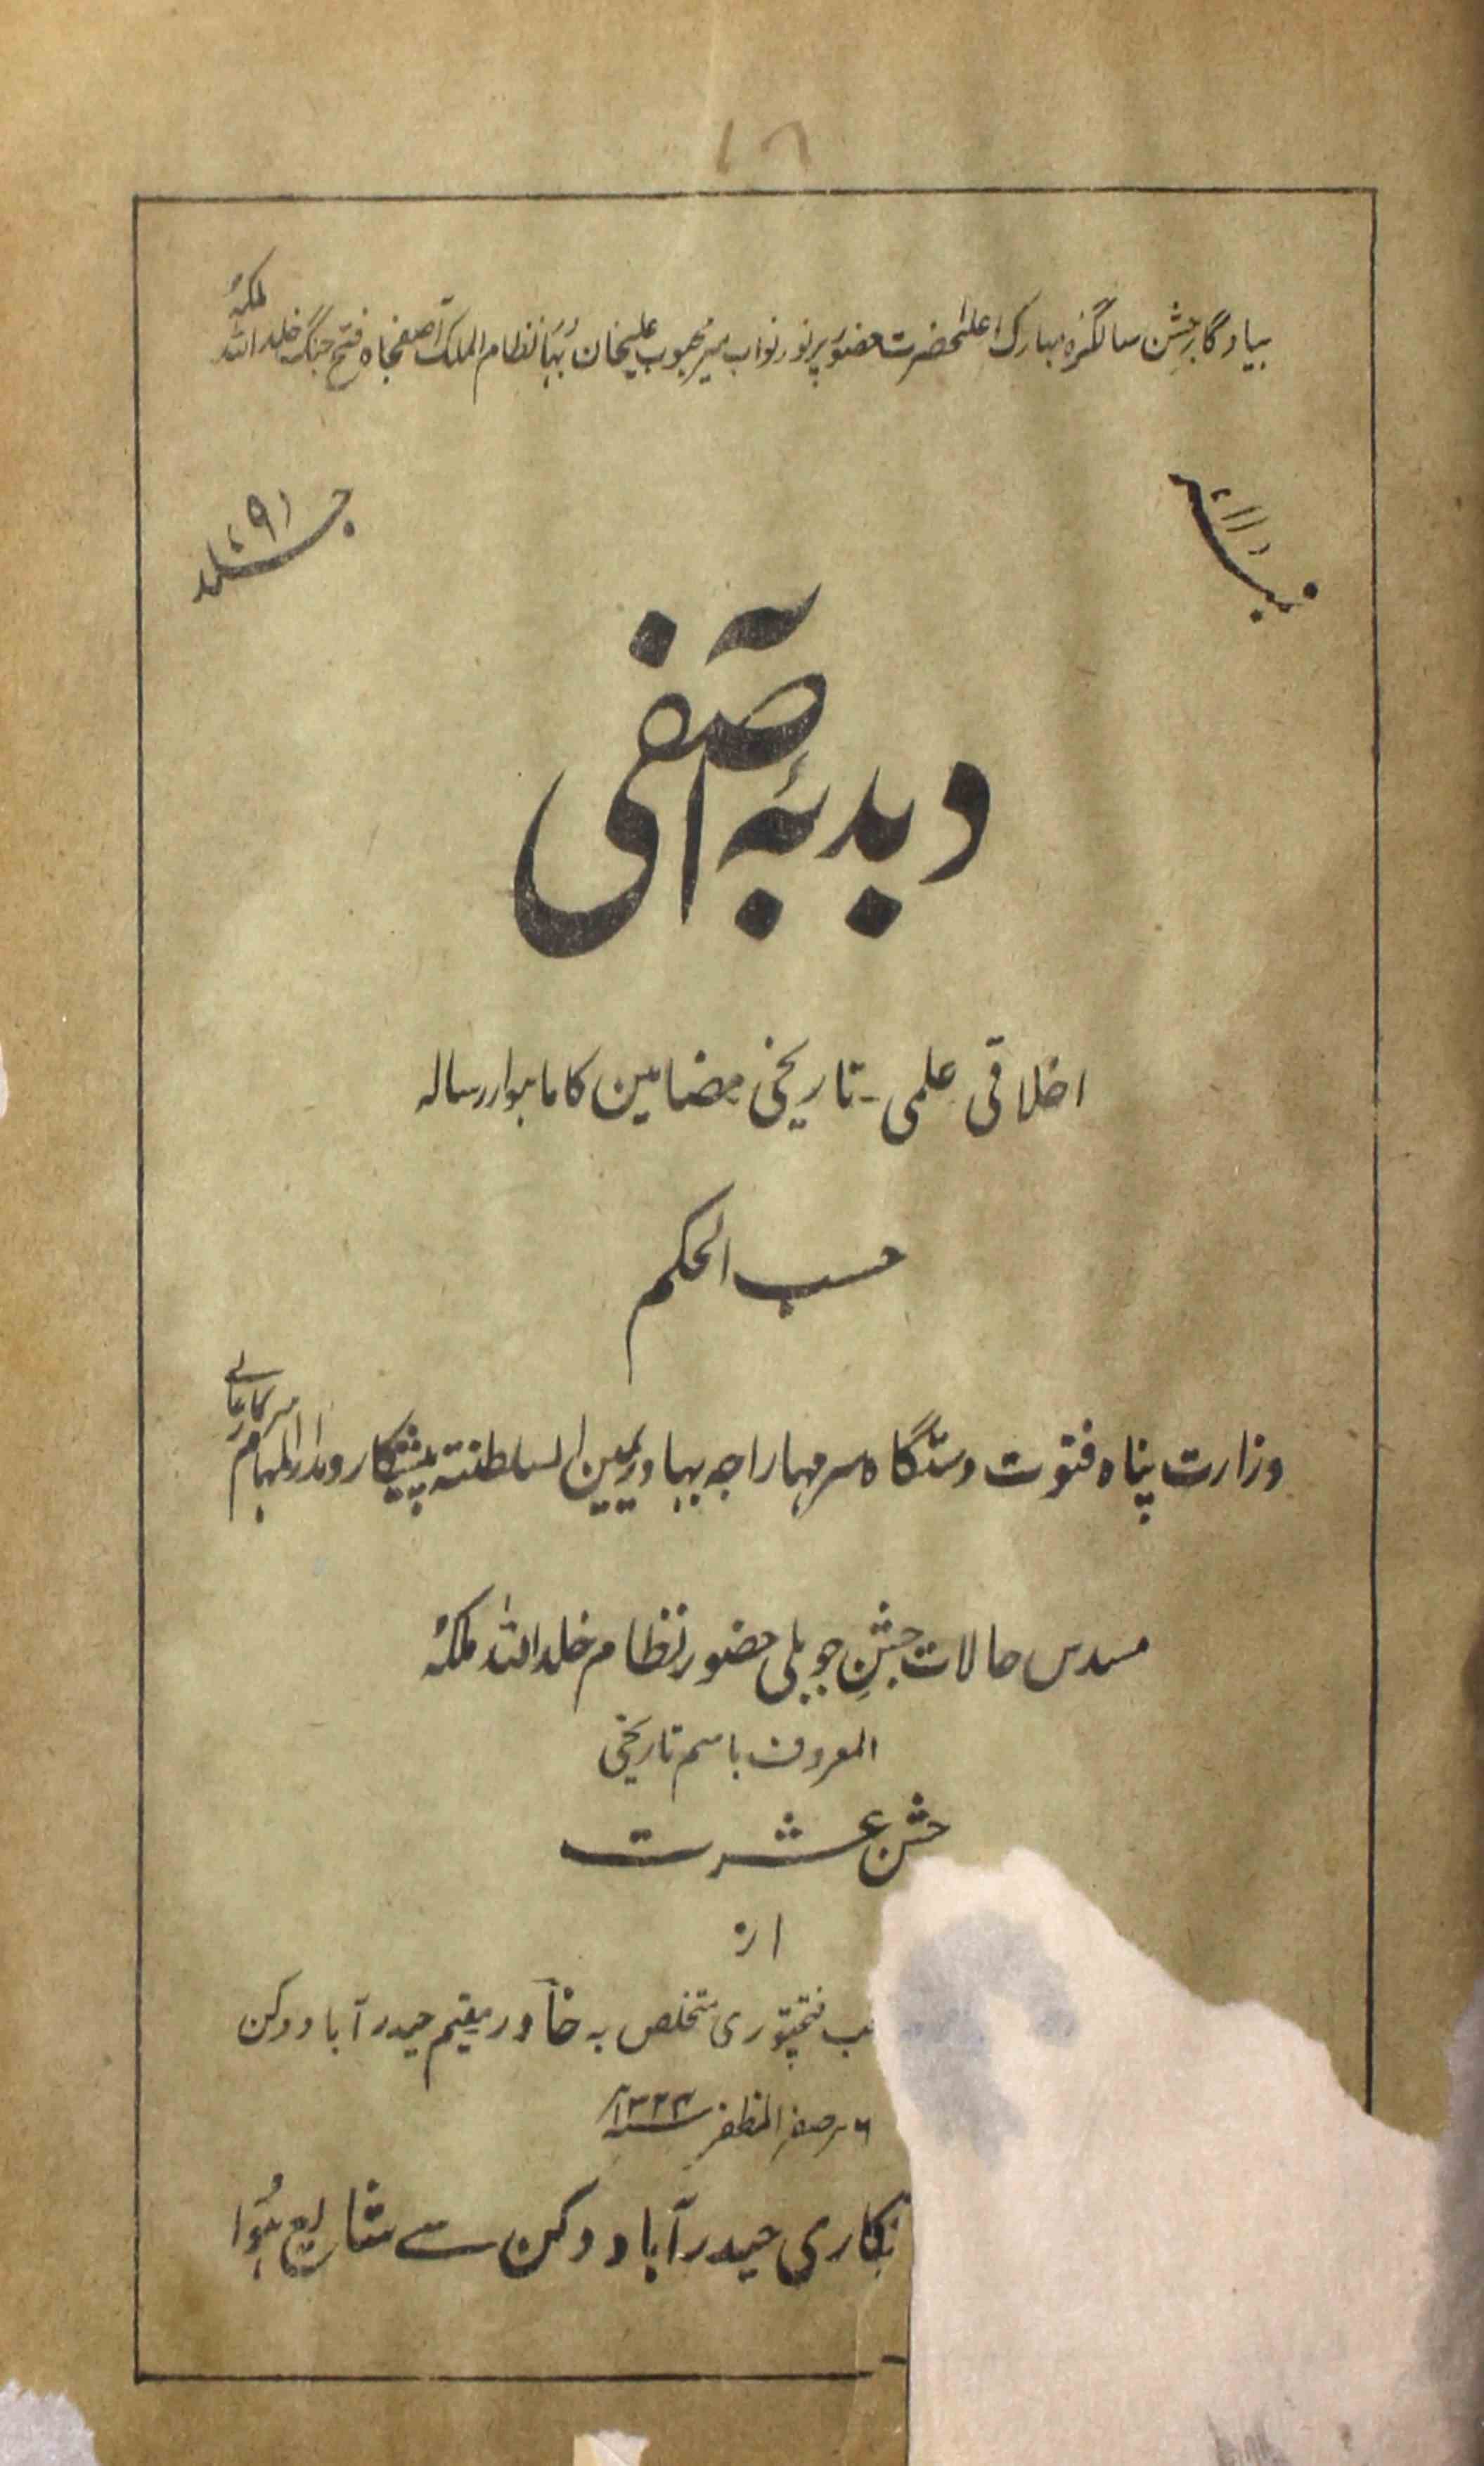 ۱۶
بیادگار جشن سالگرہ مبارک اعلیٰحضرت حضور پرنور نواب میر محبوب علیخان بہادر نظام الملک آصفجاہ فتح جنگ خلد اللہ ملکہٗ
نمبر (۱۱)
جلد (۹)
دبدبۂ آصفی
اخلاقی علمی - تاریخی مضامین کا ماہوار رسالہ
حسب الحکم
وزارت پناہ فتوت دستگاہ سر مہاراجہ بہادر یمین السلطنتہ پیشکار و مدار المہام سرکار عالے
مسدس حالات جشنِ جوبلی حضور نظام خلد اللہ ملکہٗ
المعروف باسم تاریخی
جشن عشرت
از
فتحپوری متخلص بہ خاور مقیم حیدرآباد دکن
صفر المظفر سنہ ۱۳۲۴
حیدرآباد دکن سے شایع ہُوا